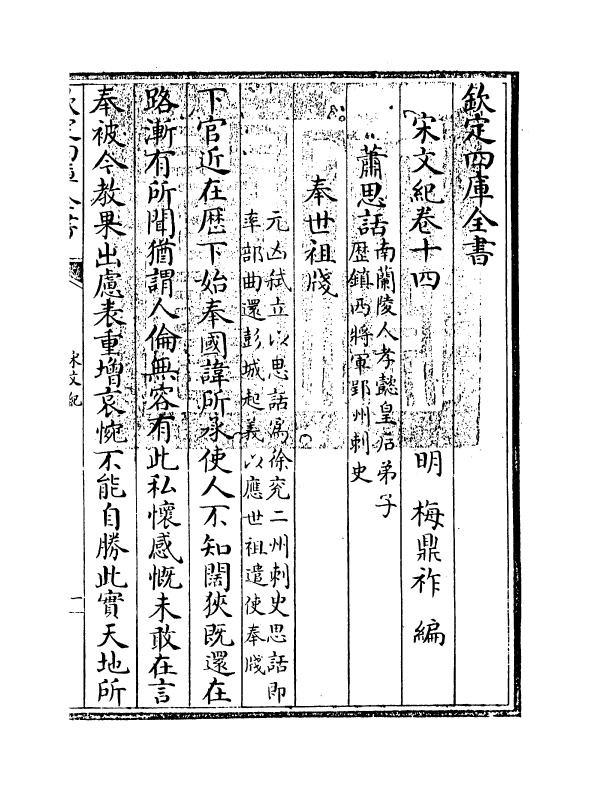 欽定四庫全書
宋文紀卷十四
明 梅鼎祚 編
蕭思話南蘭陵人孝懿皇后弟子
歷鎮西將軍郢州刺史
奉世祖牋
元凶弑立以思話為徐兖二州刺史思話即
率部曲還彭城起義以應世祖遣使奉牋
下官近在歷下始奉國諱所承使人不知闊狹既還在
路漸有所聞猶謂人倫無容有此私懷感慨未敢在言
奉被今教果出慮表重增哀惋不能自勝此實天地所
宋文紀
一